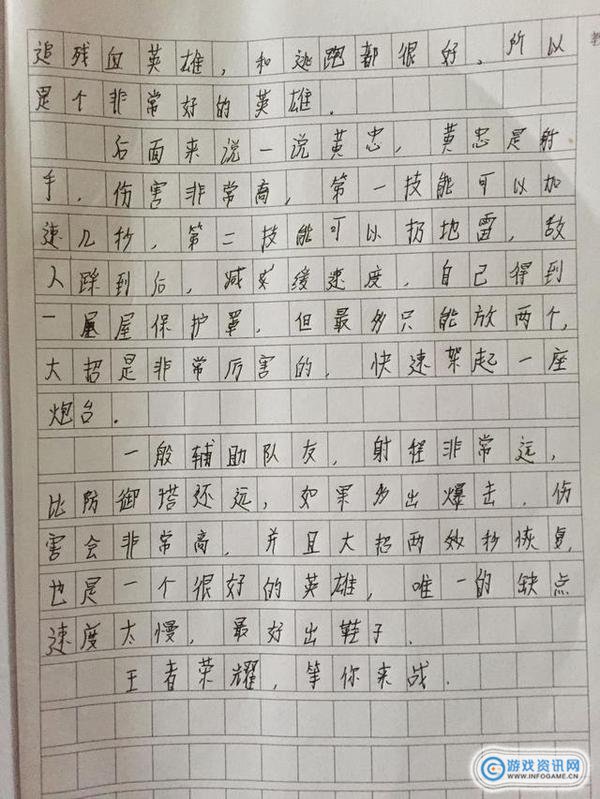 追残血英雄，和逃跑都很好。所以
是个非常好的英雄。
后面来说一说黄忠，黄忠是射
手，伤害非常高，第一技能可以加
速几秒，第二技能可以扔地雷，敌
人踩到后，减缓速度，自己得到
一屋保护罩，但最多只能放两个，
大招是非常厉害的，快速架起一座
炮台。
一般辅助队友，射程非常远，
比防御塔还远，如果多出爆击，伤
害会非常高，并且大招两秒恢复，
也是一个很好的英雄，唯一的缺点
速度太慢，最好出鞋子。
王者荣耀，等你来战。
游戏资讯网
WWW.INFOGAME.CN